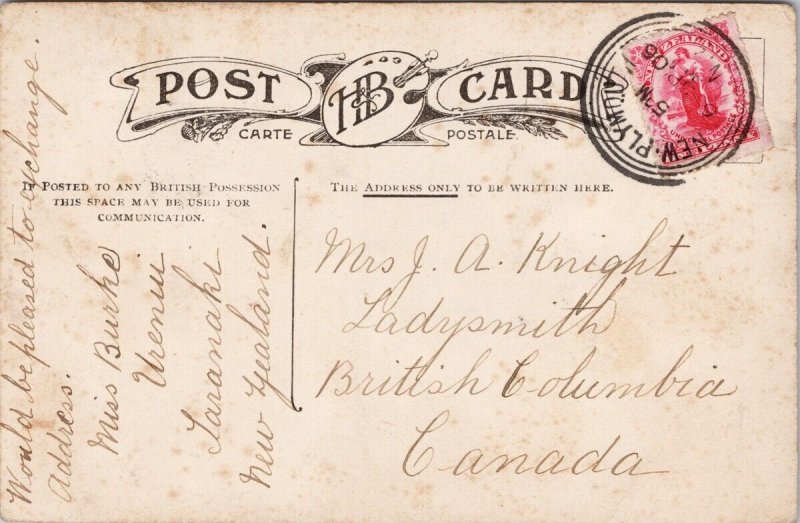 POST CARD
H&B
CARTE POSTALE.
IF POSTED TO ANY BRITISH POSSESSION
THIS SPACE MAY BE USED FOR
COMMUNICATION.
THE ADDRESS ONLY TO BE WRITTEN HERE.
NEW ZEALAND
NEW PLYMOUTH
5 PM
Would be pleased to exchange.
Address.
Miss Burke
Urenui
Taranaki
New Zealand.
Mrs J. A. Knight
Ladysmith
British Columbia
Canada